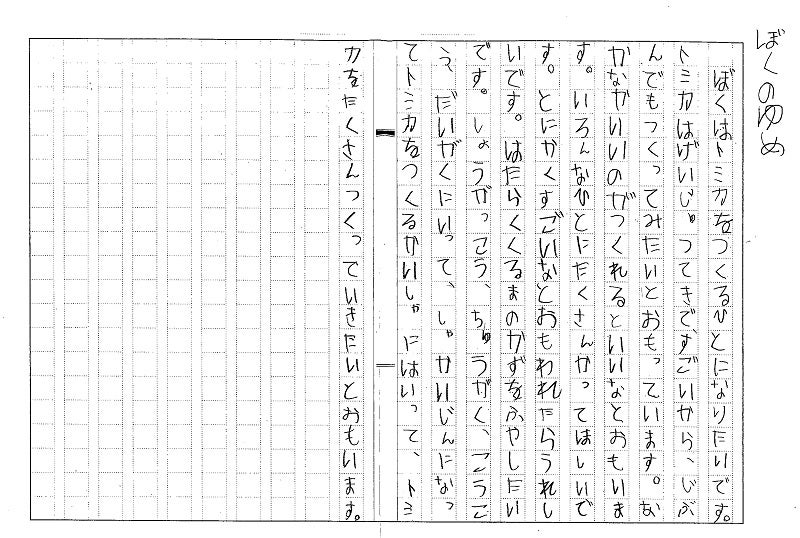 ぼくのゆめ
ぼくはトミカをつくるひとになりたいです。
トミカはげいじゅつてきで、すごいから、じぶ
んでもつくってみたいとおもっています。な
かなかいいのがつくれるといいなとおもいま
す。いろんなひとにたくさんかってほしいで
す。とにかくすごいなとおもわれたらうれし
いです。はたらくくるまのかずをふやしたい
です。しょうがっこう、ちゅうがく、こうこ
う、だいがくにいって、しゃかいじんになっ
てトミカをつくるかいしゃにはいって、トミ
カをたくさんつくっていきたいとおもいます。